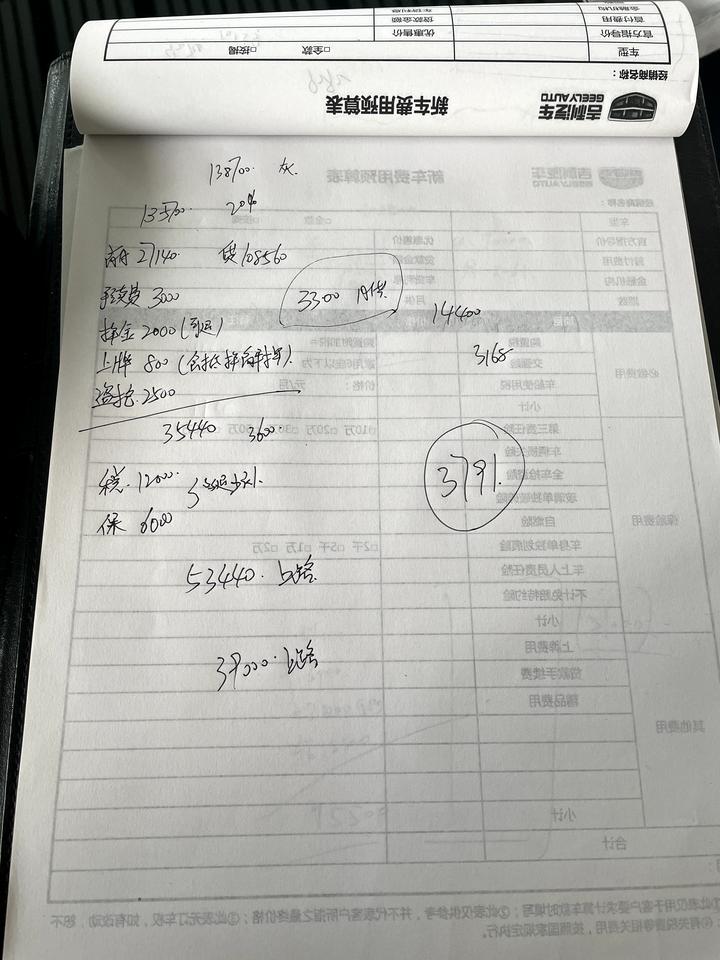 新车费用预算表
吉利汽车
GEELY AUTO
经销商名称：
车型
□全款
□按揭
官方指导价
优惠售价
首付费用
贷款金额
138700. 灰
135700 20%
首付 27140. 贷108560
手续费 3000
3300 月供
押金 2000 (可退)
14400
上牌 800
3168
盗抢 2500
35440 3600
3791.
税. 12000.
保 6000
53440. 上路
39000. 上路
新车费用预算表
吉利汽车
GEELY AUTO
经销商名称：
车型
□全款
□按揭
官方指导价
优惠售价
首付费用
贷款金额
金融机构
期数
月供
必缴费用
购置税
交强险
车船使用税
价格： 元/月
小计
保险费用
第三责任险
车辆损失险
全车抢盗险
玻璃单独破碎险
自燃险
车身单独划痕险
□2千 □5千 □1万 □2万
车上人员责任险
不计免赔特约险
小计
其他费用
上牌费用
贷款手续费
精品费用
小计
合计